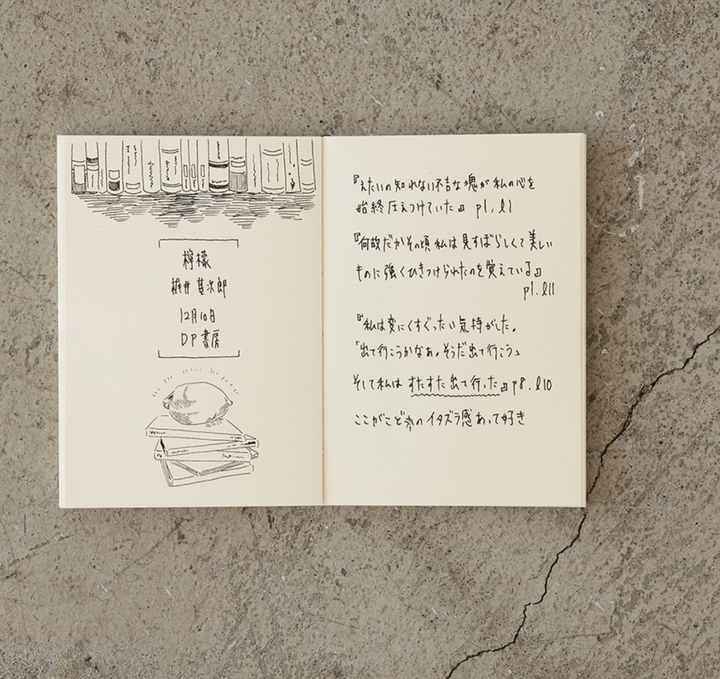 檸檬
梶井 基次郎
12月10日
DP書房
『えたいの知れない不吉な塊が私の心を
始終圧えつけていた』 p1, l1
『何故だかその頃私は見すぼらしくて美しい
ものに強くひきつけられたのを覚えている』
p1. l11
『私は変にくすぐったい気持がした。
「出て行こうかなあ。そうだ出て行こう」
そして私は すたすた出て行った』p8. l10
ここがこどものイタズラ感あって好き